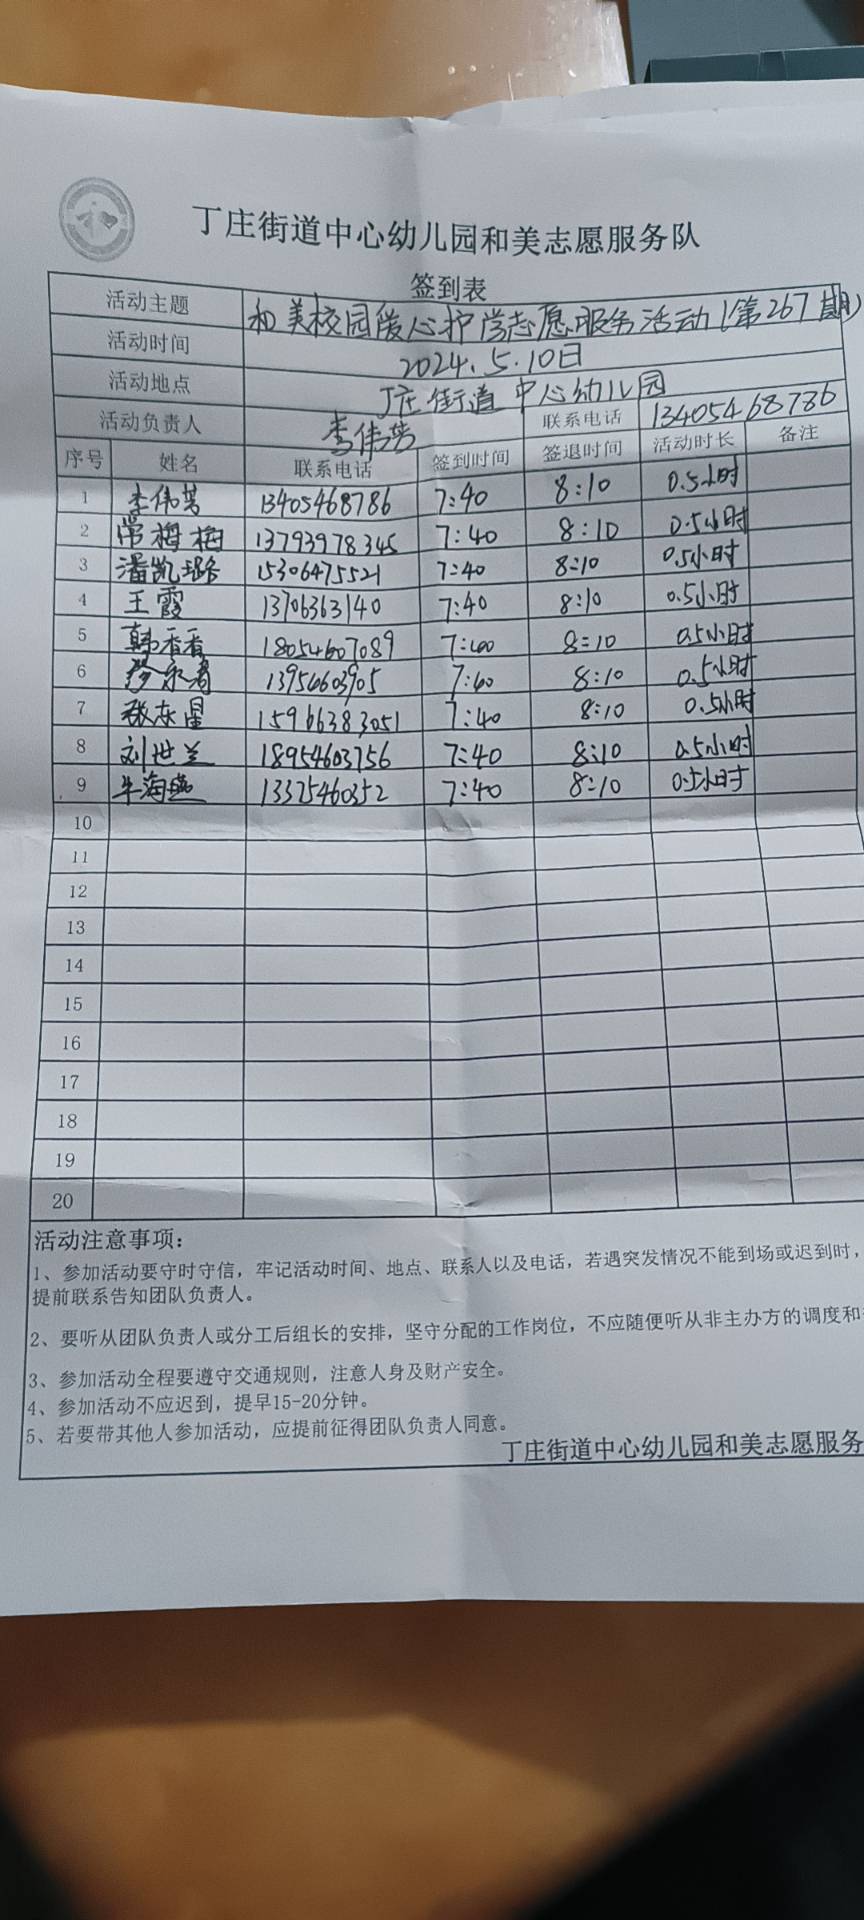 丁庄街道中心幼儿园和美志愿服务队
签到表
活动主题 和美校园暖心护学志愿服务活动(第267期)
活动时间 2024.5.10日
活动地点 丁庄街道中心幼儿园
活动负责人 李伟芳 联系电话 13405468786
序号 姓名 联系电话 签到时间 签退时间 活动时长 备注
1 李伟芳 13405468786 7:40 8:10 0.5小时
2 常梅梅 13793978345 7:40 8:10 0.5小时
3 潘凯璐 15306475521 7:40 8:10 0.5小时
4 王霞 13706363140 7:40 8:10 0.5小时
5 韩香香 18054607089 7:40 8:10 0.5小时
6 13956603905 7:40 8:10 0.5小时
7 15966383051 7:40 8:10 0.5小时
8 刘世兰 18954603756 7:40 8:10 0.5小时
9 牛海燕 13375460352 7:40 8:10 0.5小时
10
11
12
13
14
15
16
17
18
19
20
活动注意事项:
1、参加活动要守时守信，牢记活动时间、地点、联系人以及电话，若遇突发情况不能到场或迟到时，
提前联系告知团队负责人。
2、要听从团队负责人或分工后组长的安排，坚守分配的工作岗位，不应随便听从非主办方的调度和
3、参加活动全程要遵守交通规则，注意人身及财产安全。
4、参加活动不应迟到，提早15-20分钟。
5、若要带其他人参加活动，应提前征得团队负责人同意。
丁庄街道中心幼儿园和美志愿服务